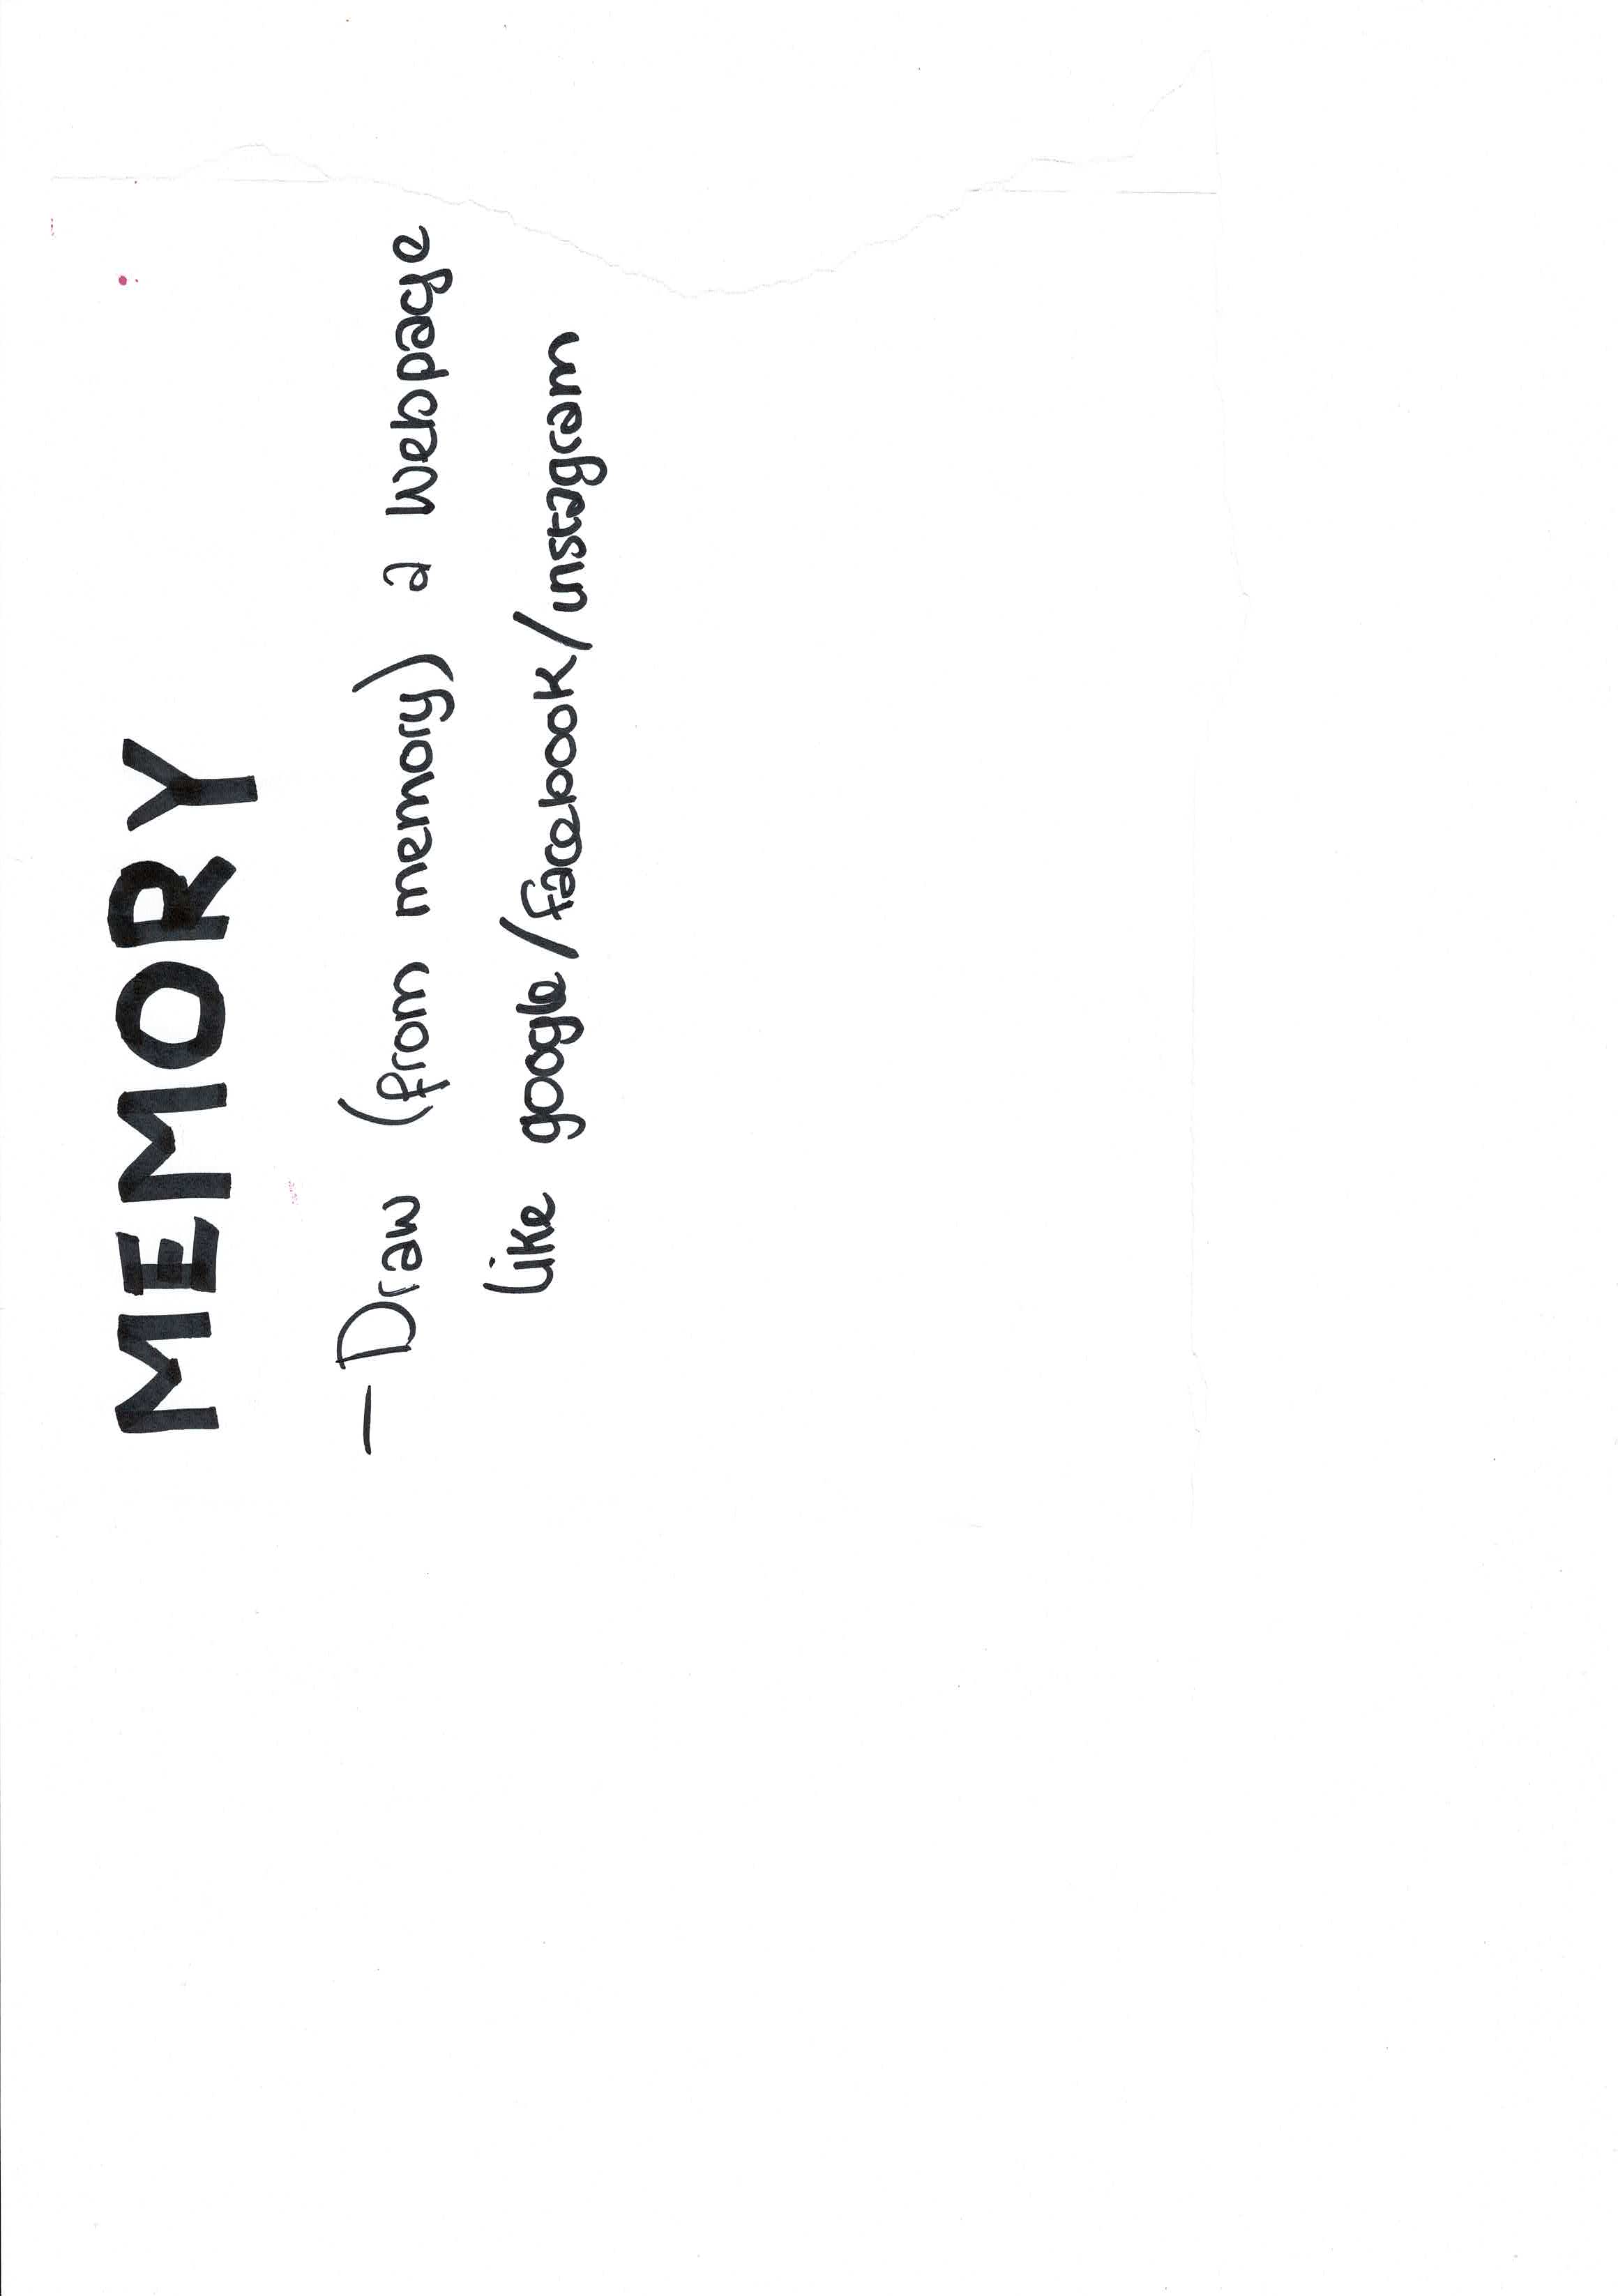 MEMORY
— Draw (from memory) a webpage
like google/facebook/instagram